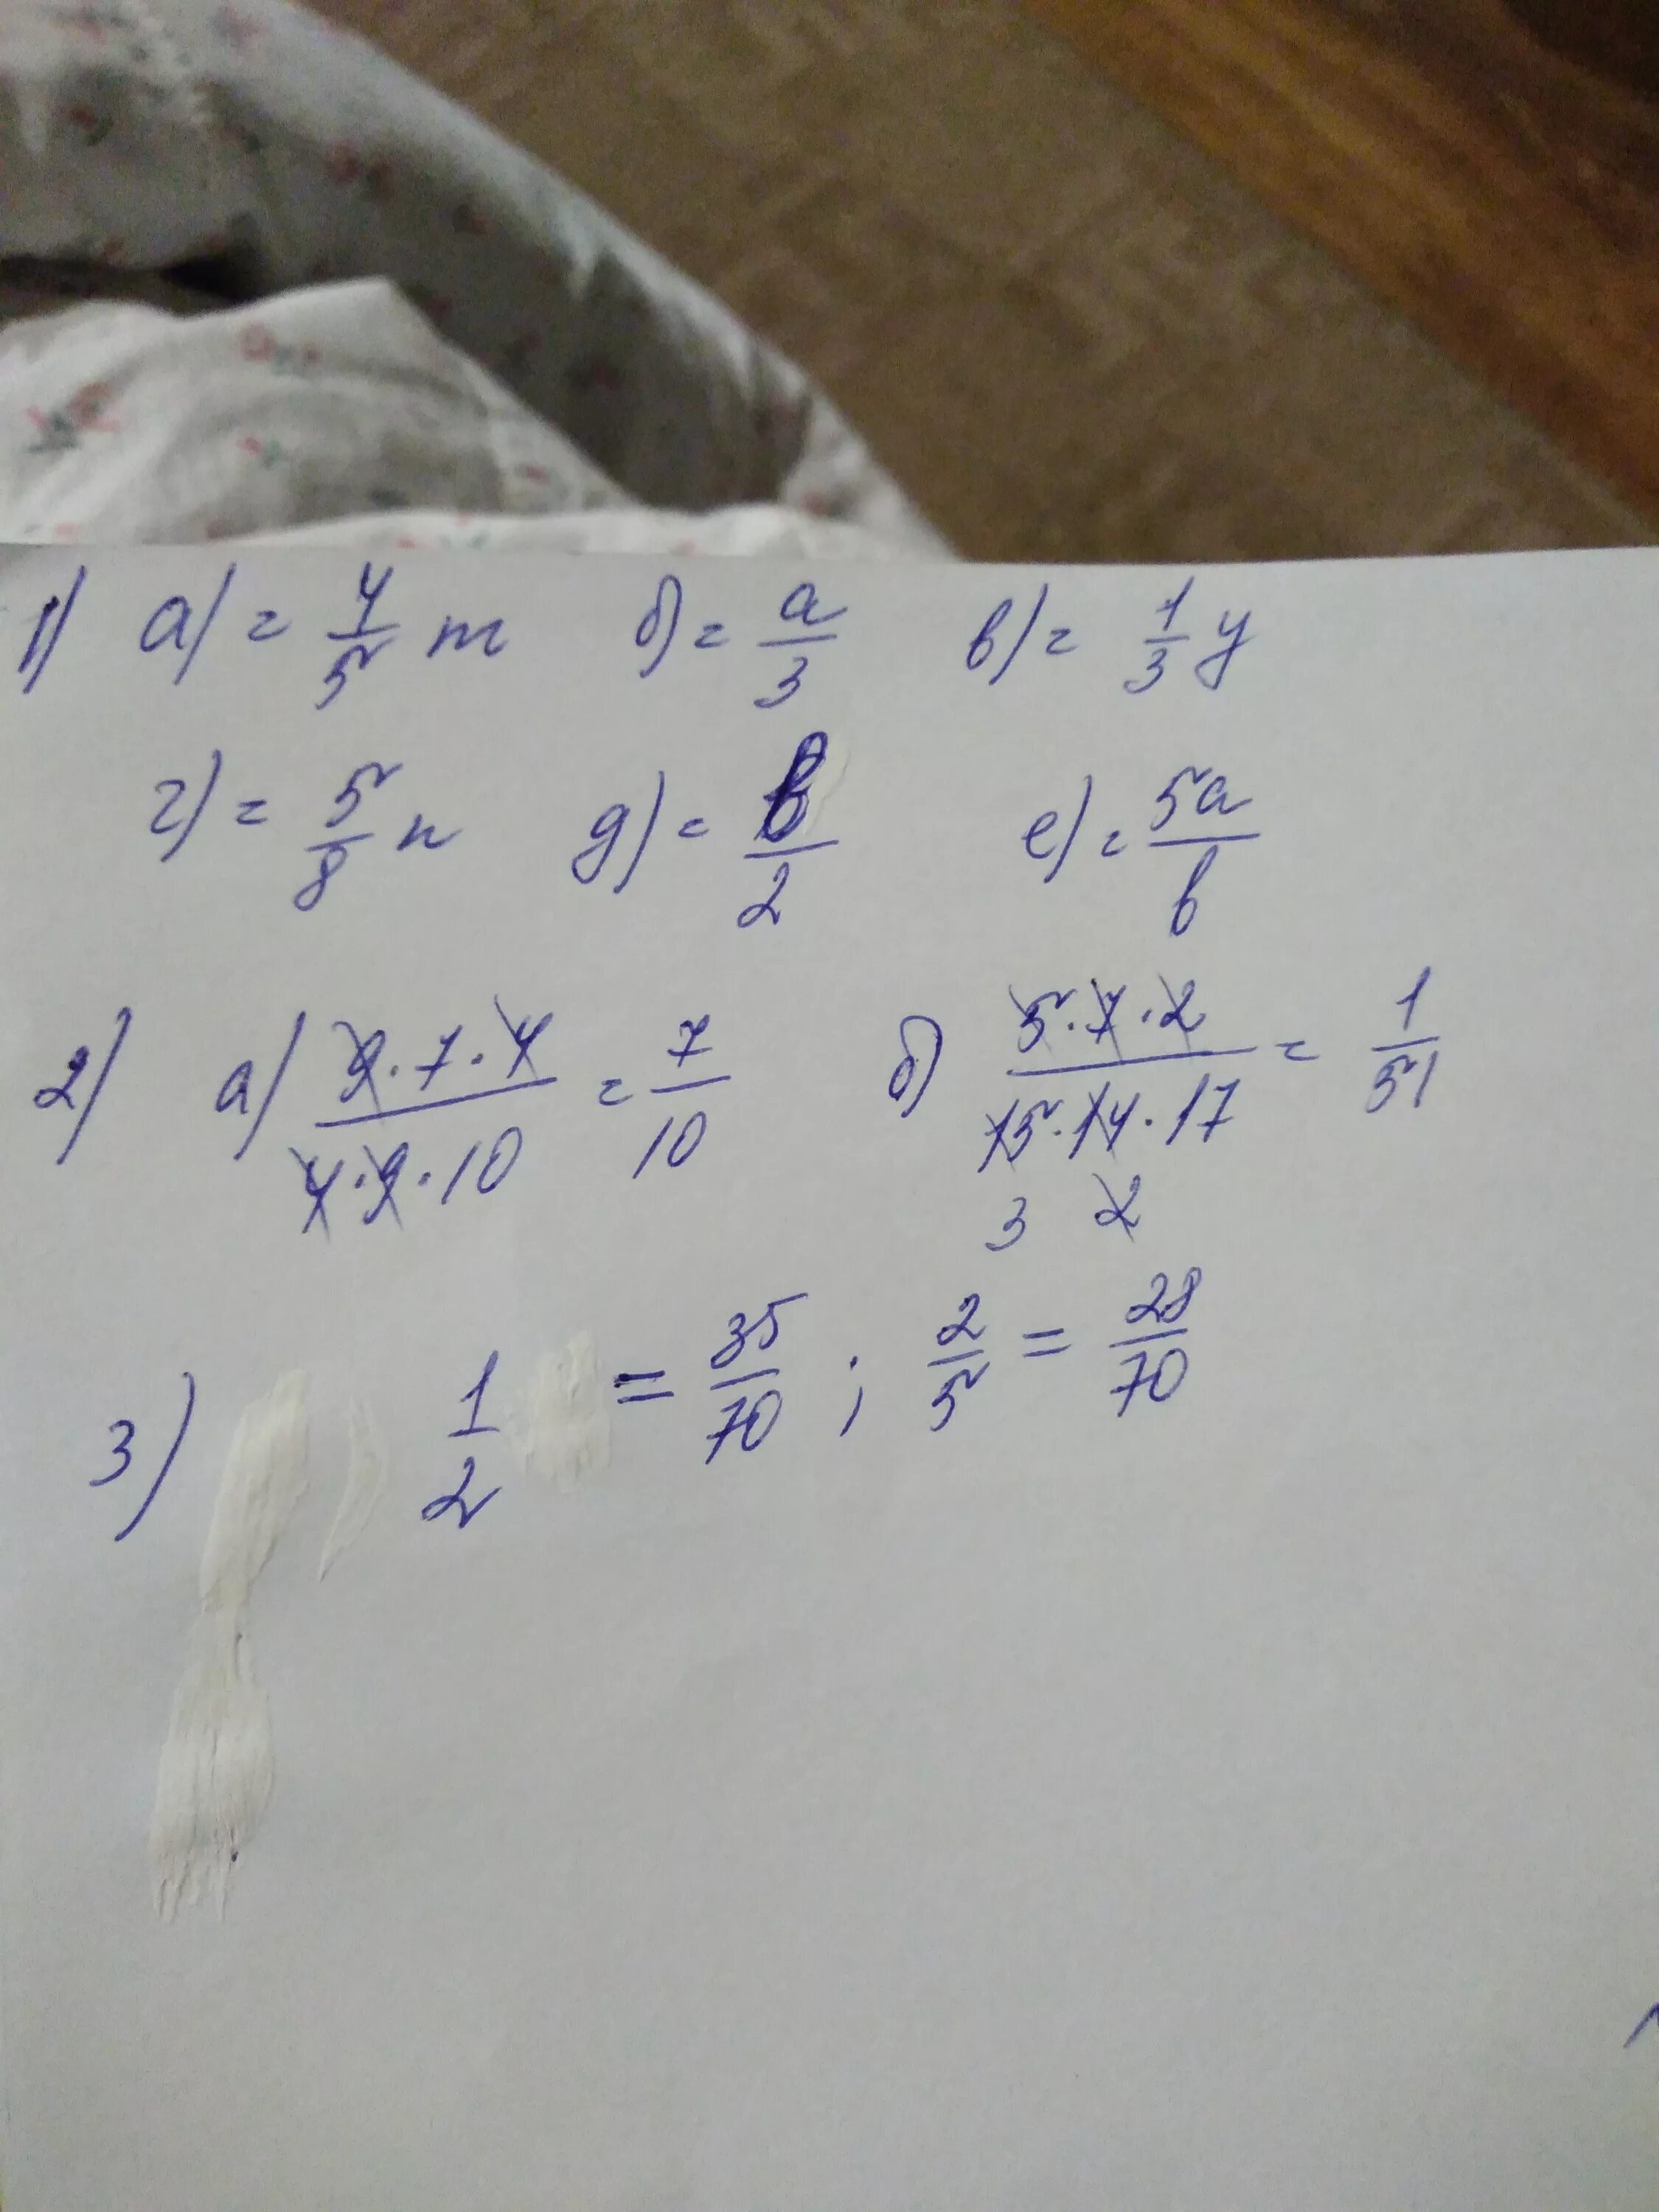 1) а) = 4/5 m б) = a/3 в) = 1/3 y
г) = 5/8 n д) = b/2 е) = 5a/b
2) а) 9·7·4/4·9·10 = 7/10 б) 5·7·2/15·14·17 = 1/51
3 2
3) 1/2 = 35/70 ; 2/5 = 28/70